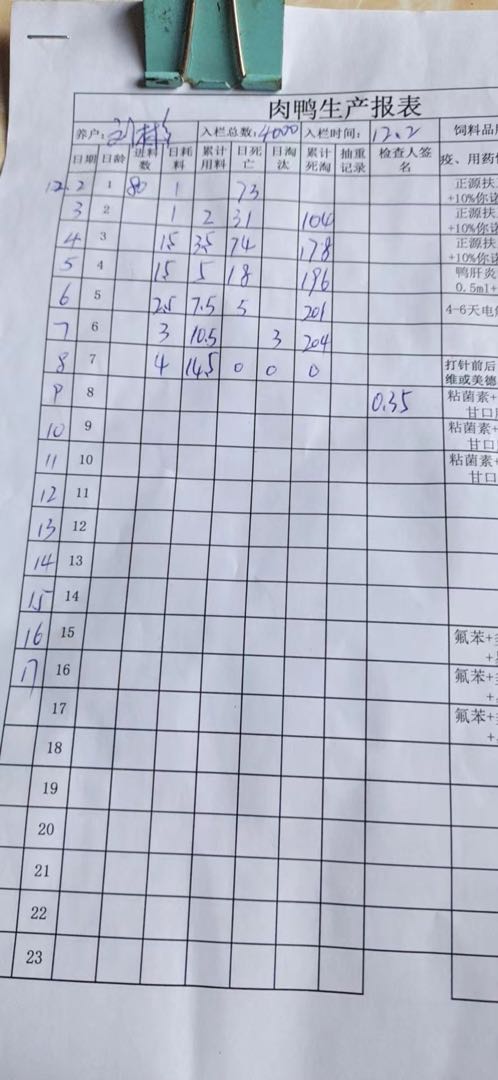 肉鸭生产报表
养户: 入栏总数: 4000 入栏时间: 12.2 饲料品
日期 日龄 进料数 日耗料 累计用料 日死亡 日淘汰 累计死淘 抽重记录 检查人签名 疫、用药
12.2 1 80 1 73 正源扶
+10%你
3 2 1 2 31 104 正源扶
+10%你
4 3 1.5 3.5 74 178 正源扶
+10%你
5 4 1.5 5 18 196 鸭肝炎
0.5ml+
6 5 2.5 7.5 5 201 4-6天电
7 6 3 10.5 3 204
8 7 4 14.5 0 0 0 打针前后
维或美德
9 8 0.35 粘菌素+
甘口
10 9 粘菌素+
甘口
11 10 粘菌素+
甘口
12 11
13 12
14 13
15 14
16 15 氟苯+
17 16 氟苯+
17 氟苯+
18
19
20
21
22
23